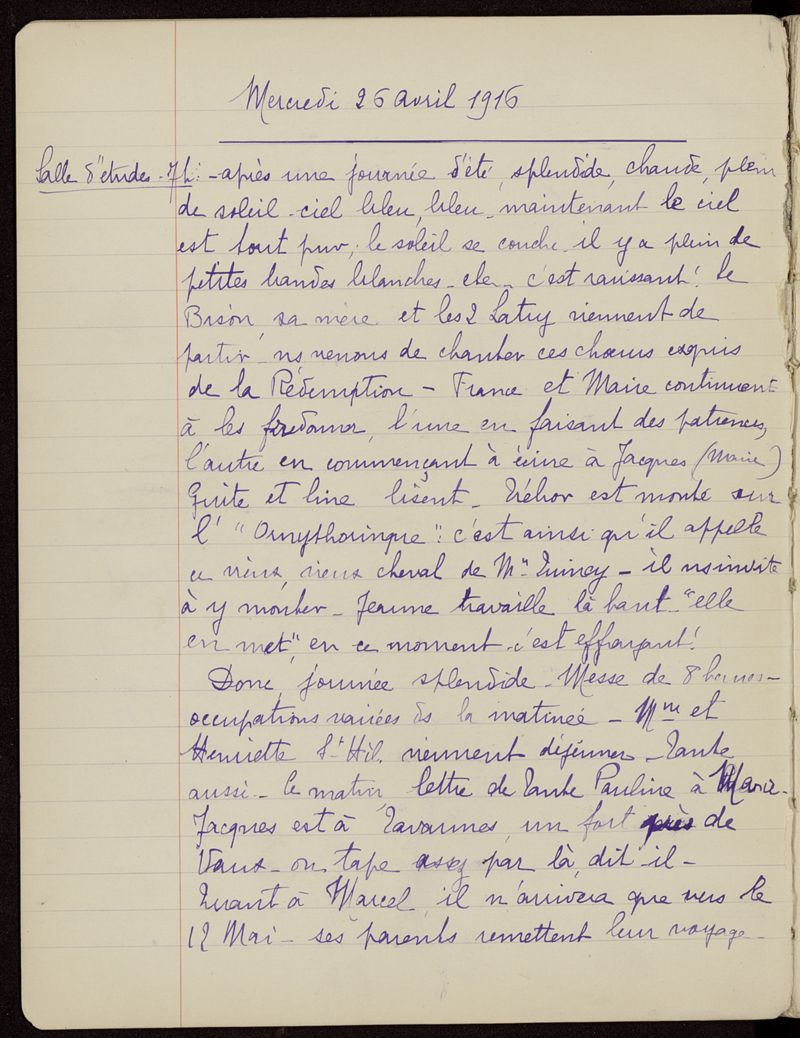 Mercredi 26 avril 1916
Salle d'études - 7h : - après une journée d'été, splendide, chaude, plein
de soleil - ciel bleu, bleu - maintenant le ciel
est tout pur, le soleil se couche - il y a plein de
petites bandes blanches - etc - c'est ravissant ! le
Brisón, sa mère et les 2 Latry viennent de
partir - ns venons de chanter ces chœurs exquis
de la Rédemption - France et Marie continuent
à les fredonner, l'une en faisant des patiences,
l'autre en commençant à écrire à Jacques (Marie)
Guite et line lisent - Tréhor est monté sur
l' "Ornythorinque" : c'est ainsi qu'il appelle
ce vieux, vieux cheval de Mr Quincy - il ns invite
à y monter - Jeanne travaille là haut - "elle
en met", en ce moment - c'est effrayant !
Donc, journée splendide - Messe de 8 heures -
occupations variées ds la matinée - Mme et
Henriette St Hil. viennent déjeuner - Tante
aussi - le matin, lettre de Tante Pauline à Marie -
Jacques est à Tavannes, un fort près de
Vaux - on tape assez par là, dit-il -
Quant à Marcel, il n'arrivera que vers le
12 Mai - ses parents remettent leur voyage -